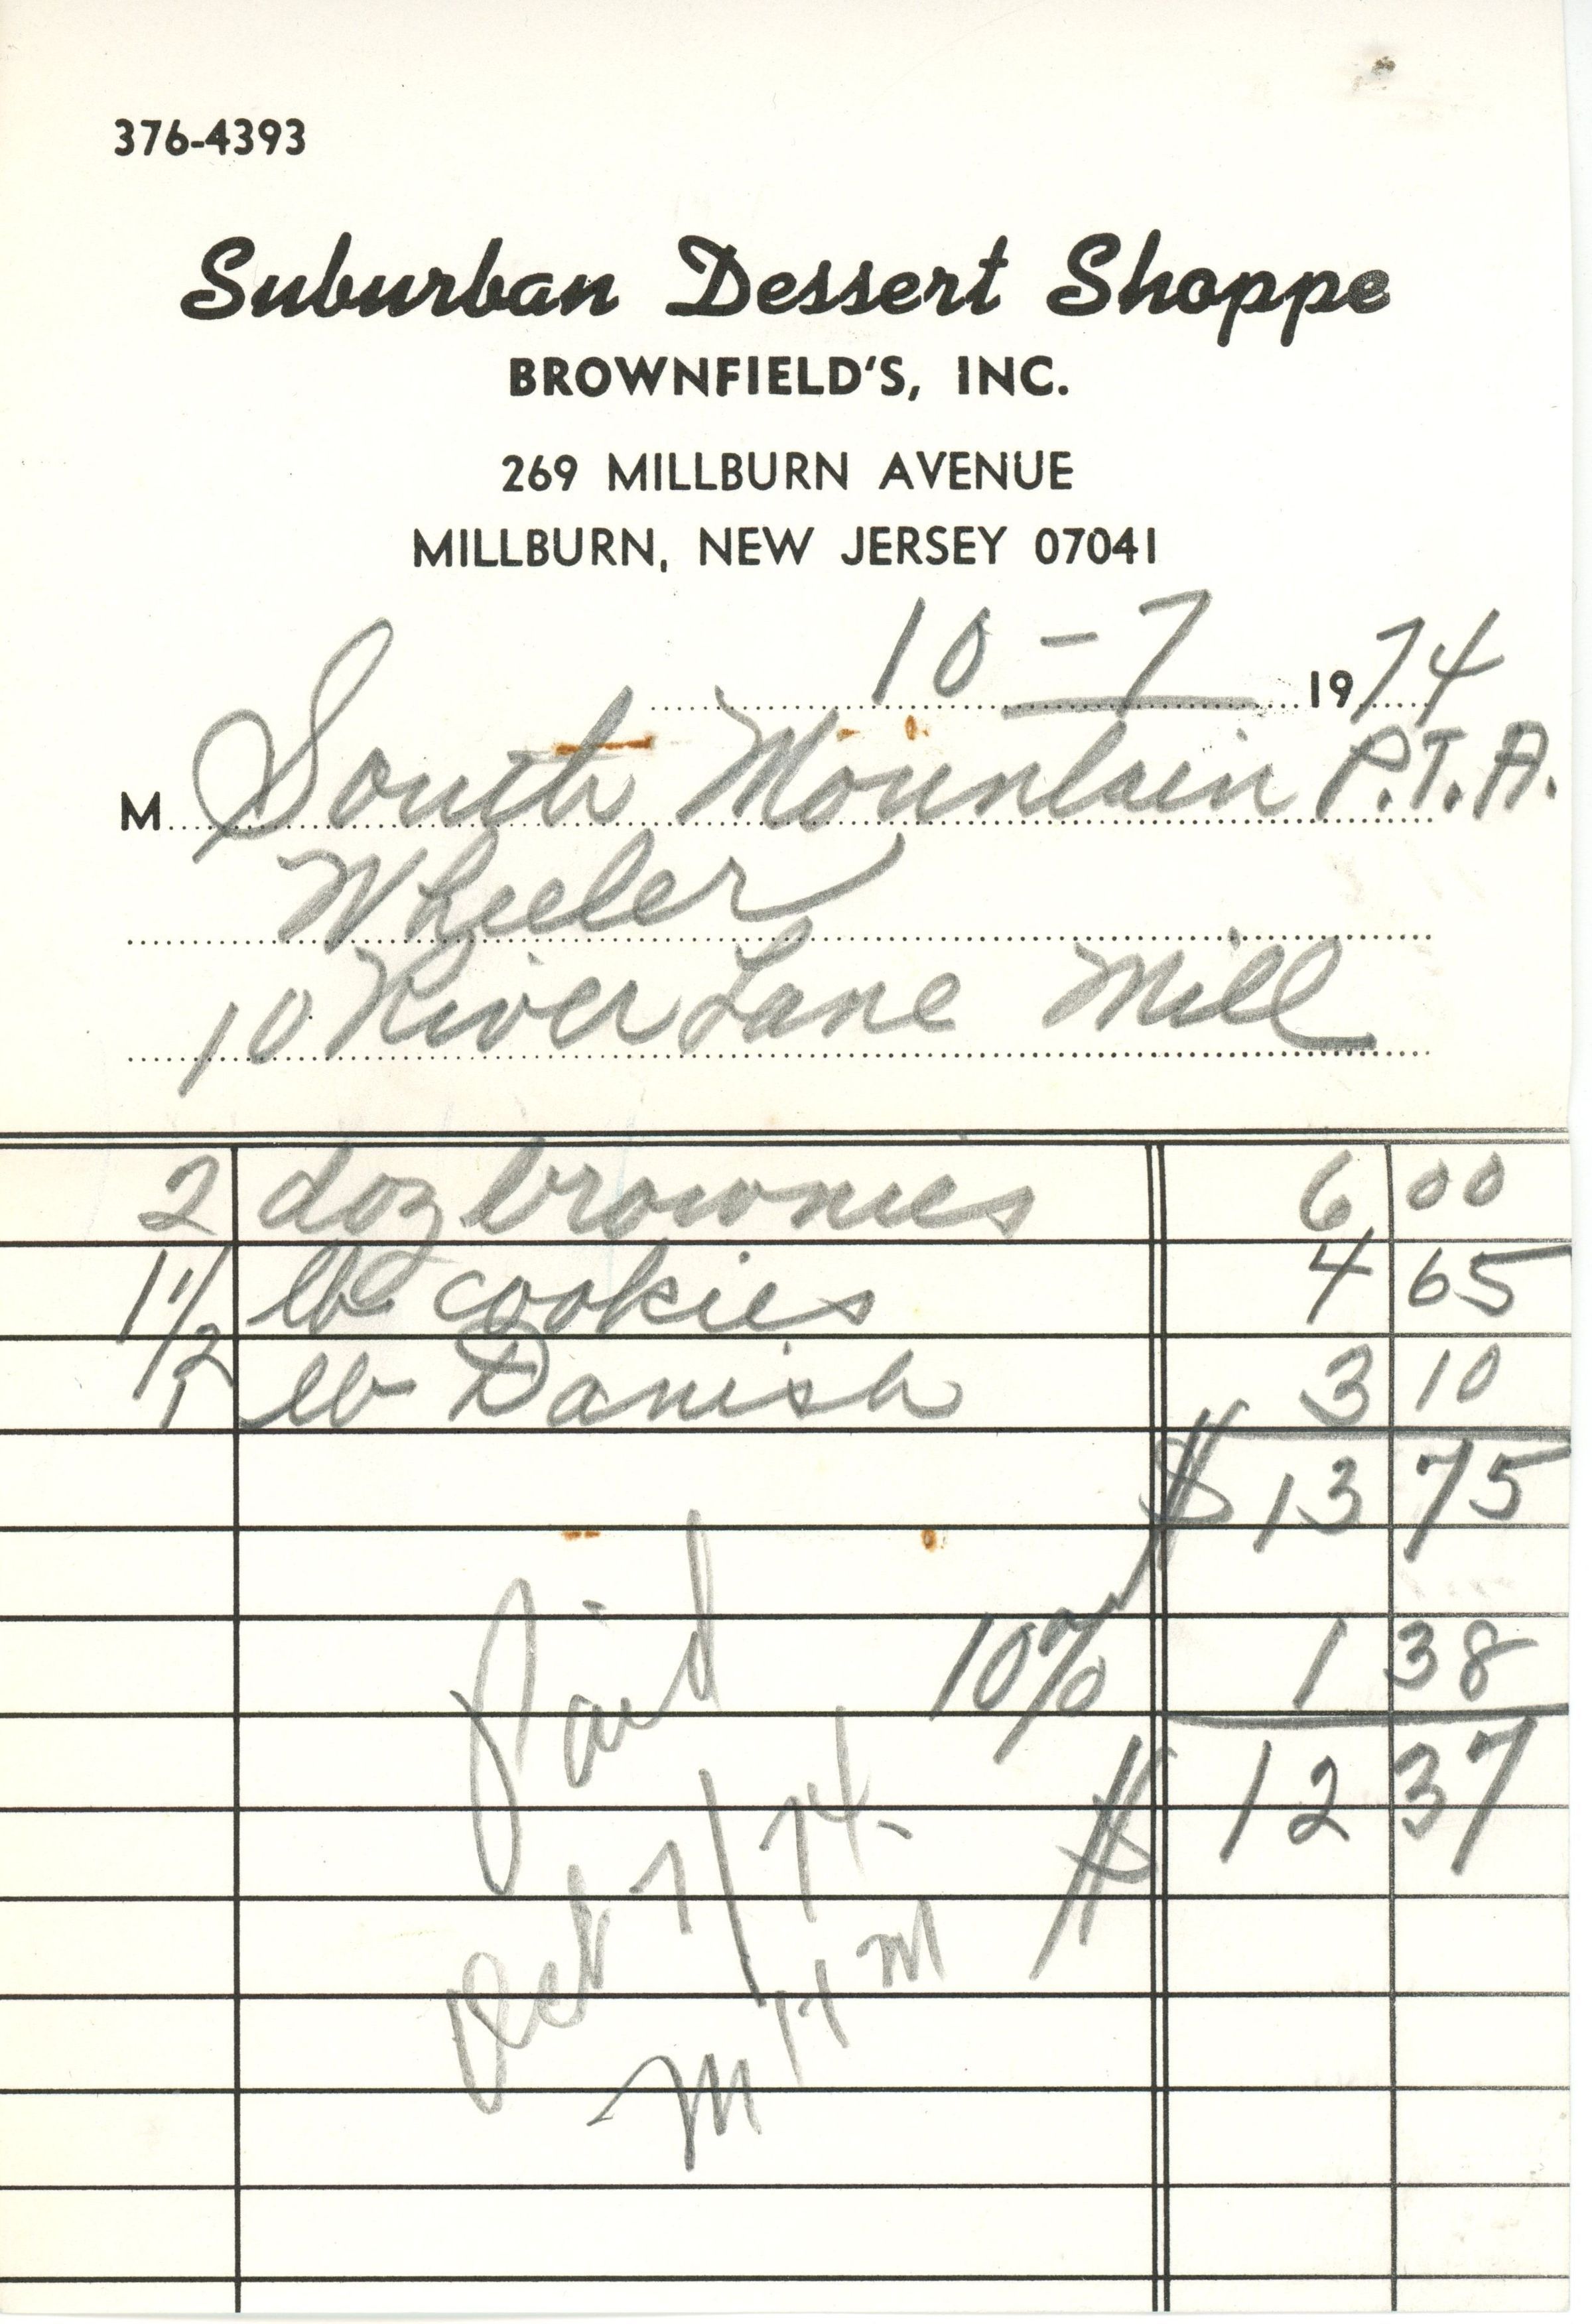 376-4393
Suburban Dessert Shoppe
BROWNFIELD'S, INC.
269 MILLBURN AVENUE
MILLBURN, NEW JERSEY 07041
10-7 1974
M South Mountain P.T.A.
Wheeler
10 River Lane Mill
2 doz brownies 6 00
1 1/2 lb cookies 4 65
1 lb Danish 3 10
$ 13 75
10% 1 38
$ 12 37
Paid
Oct 7/74
MHM